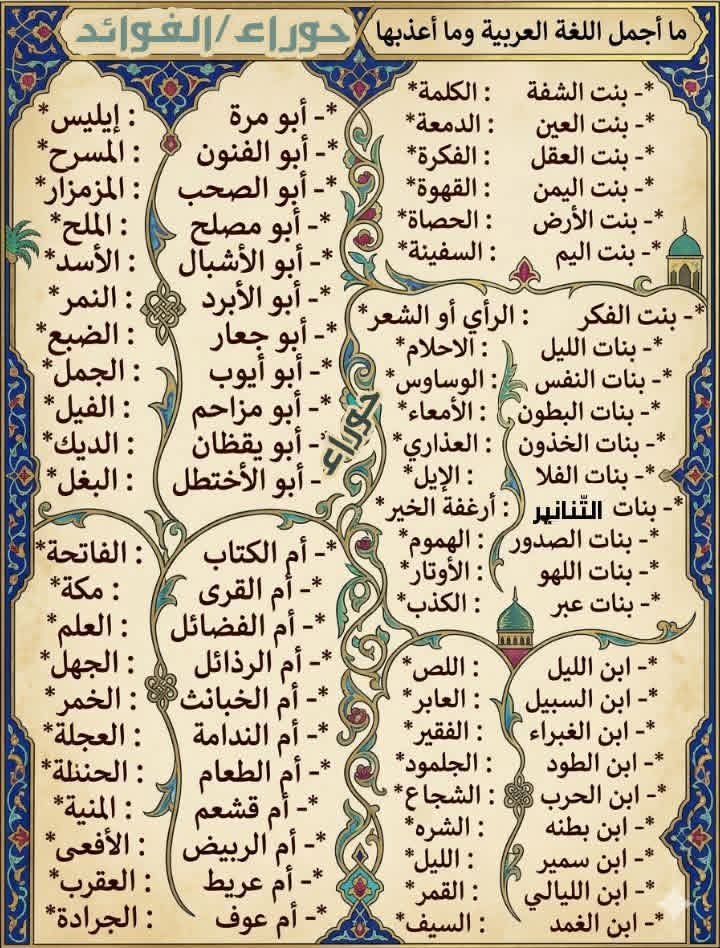 ما أجمل اللغة العربية وما أعذبها
حوراء/الفوائد
*- بنت الشفة : الكلمة*
*- بنت العين : الدمعة*
*- بنت العقل : الفكرة*
*- بنت اليمن : القهوة*
*- بنت الأرض : الحصاة*
*- بنت اليم : السفينة*
*- بنت الفكر : الرأي أو الشعر*
*- بنات الليل : الاحلام*
*- بنات النفس : الوساوس*
*- بنات البطون : الأمعاء*
*- بنات الخذون : العذاري*
*- بنات الفلا : الإيل*
*- بنات التّنانير : أرغفة الخير*
*- بنات الصدور : الهموم*
*- بنات اللهو : الأوتار*
*- بنات عبر : الكذب*
*- ابن الليل : اللص*
*- ابن السبيل : العابر*
*- ابن الغبراء : الفقير*
*- ابن الطود : الجلمود*
*- ابن الحرب : الشجاع*
*- ابن بطنه : الشره*
*- ابن سمير : الليل*
*- ابن الليالي : القمر*
*- ابن الغمد : السيف*
*- أبو مرة : إيليس*
*- أبو الفنون : المسرح*
*- أبو الصحب : المزمزار*
*- أبو مصلح : الملح*
*- أبو الأشبال : الأسد*
*- أبو الأبرد : النمر*
*- أبو جعار : الضبع*
*- أبو أيوب : الجمل*
*- أبو مزاحم : الفيل*
*- أبو يقظان : الديك*
*- أبو الأختطل : البغل*
حوراء
*- أم الكتاب : الفاتحة*
*- أم القرى : مكة*
*- أم الفضائل : العلم*
*- أم الرذائل : الجهل*
*- أم الخبانث : الخمر*
*- أم الندامة : العجلة*
*- أم الطعام : الحنظلة*
*- أم قشعم : المنية*
*- أم الربيض : الأفعى*
*- أم عريط : العقرب*
*- أم عوف : الجرادة*